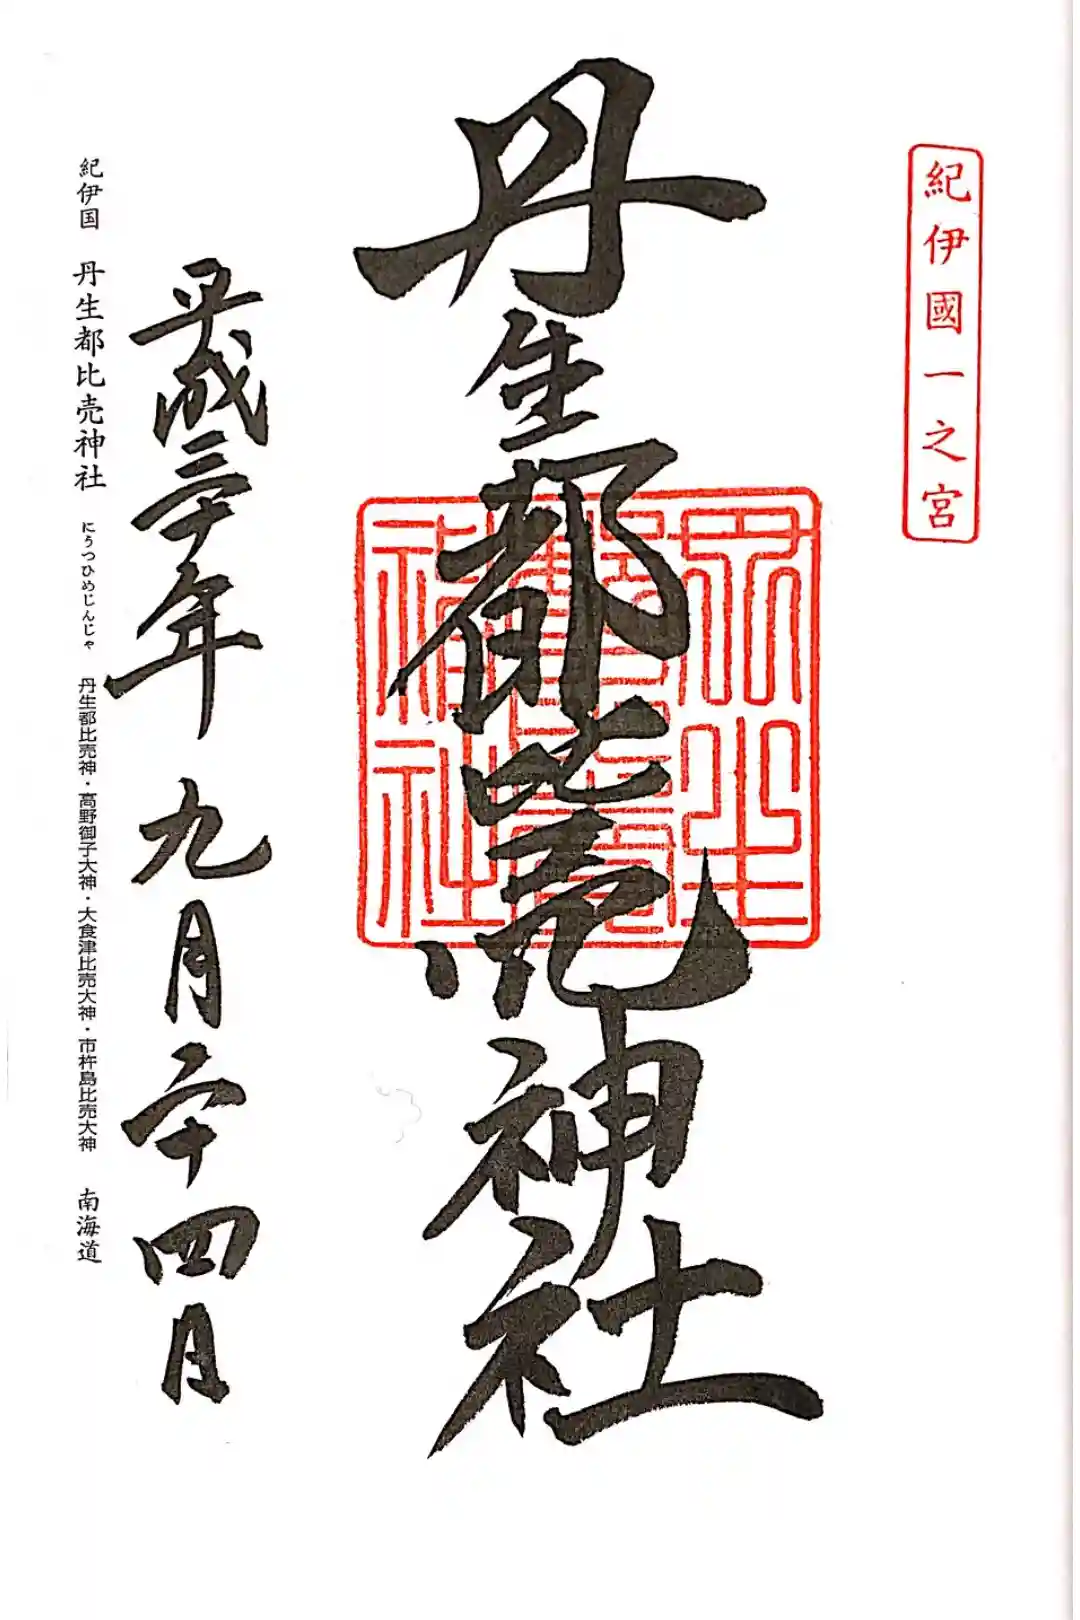 紀伊國一之宮
丹生都比売神社
平成三十年九月二十四日
紀伊国 丹生都比売神社 にうつひめじんじゃ 丹生都比売神・高野御子大神・大食津比売大神・市杵島比売大神 南海道